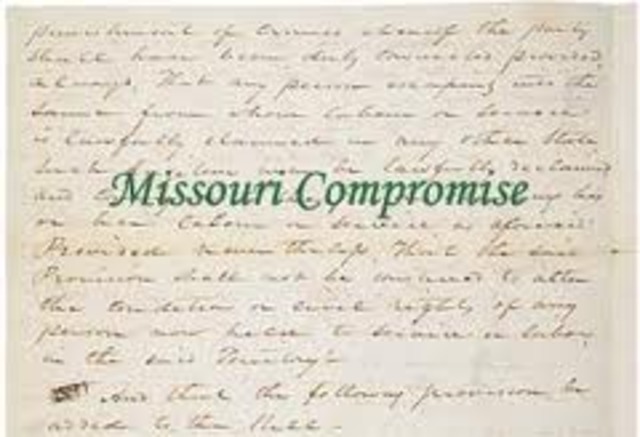 punishment of crimes whereof the party
shall have been duly convicted provided
always, That any person escaping into the
same from whom labour or service
is lawfully claimed in any other State
such fugitive may be lawfully reclaimed
and his
Missouri Compromise
or her labour or service as aforesaid:
Provided nevertheless, That the said
Provision shall not be construed to alter
the condition or civil rights of any
person now held to service or labour
in the said Territory.
And that the following provision be
added to the Bill.